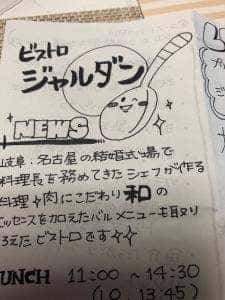 ビストロ
ジャルダン
NEWS
岐阜、名古屋の結婚式場で
料理長を務めてきたシェフが作る
料理♦肉にこだわり和の
エッセンスを加えたバルメニューも取り
揃えたビストロです✧✧
LUNCH 11:00 ~ 14:30
(LO.13:45)